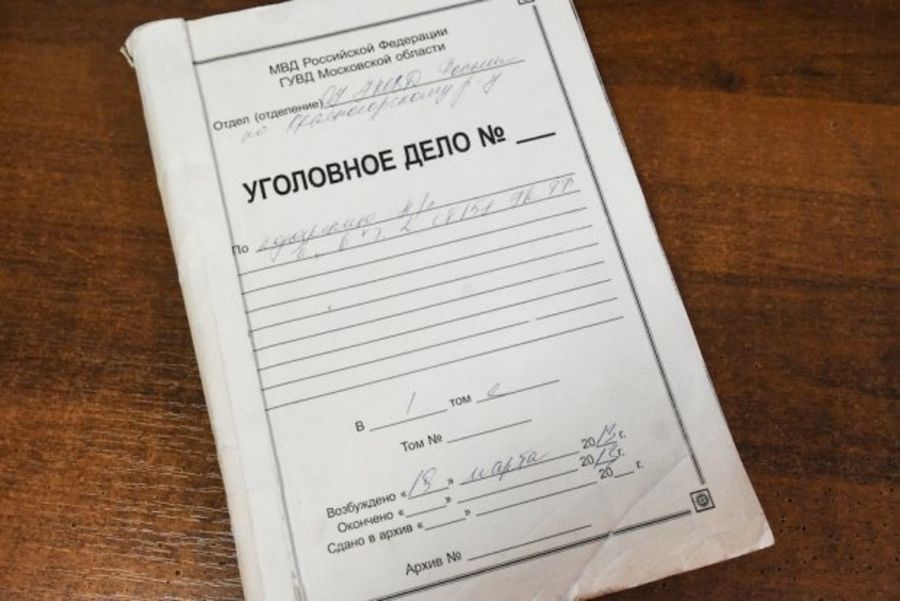 МВД Российской Федерации
ГУВД Московской области
Отдел (отделение) ОД УМВД России
по Красногорскому р-у
УГОЛОВНОЕ ДЕЛО № ___
По
ст. 158 УК РФ
В 1 томе
Том №
Возбуждено «19» марта 2013 г.
Окончено « » 2013 г.
Сдано в архив « » 20 г.
Архив №